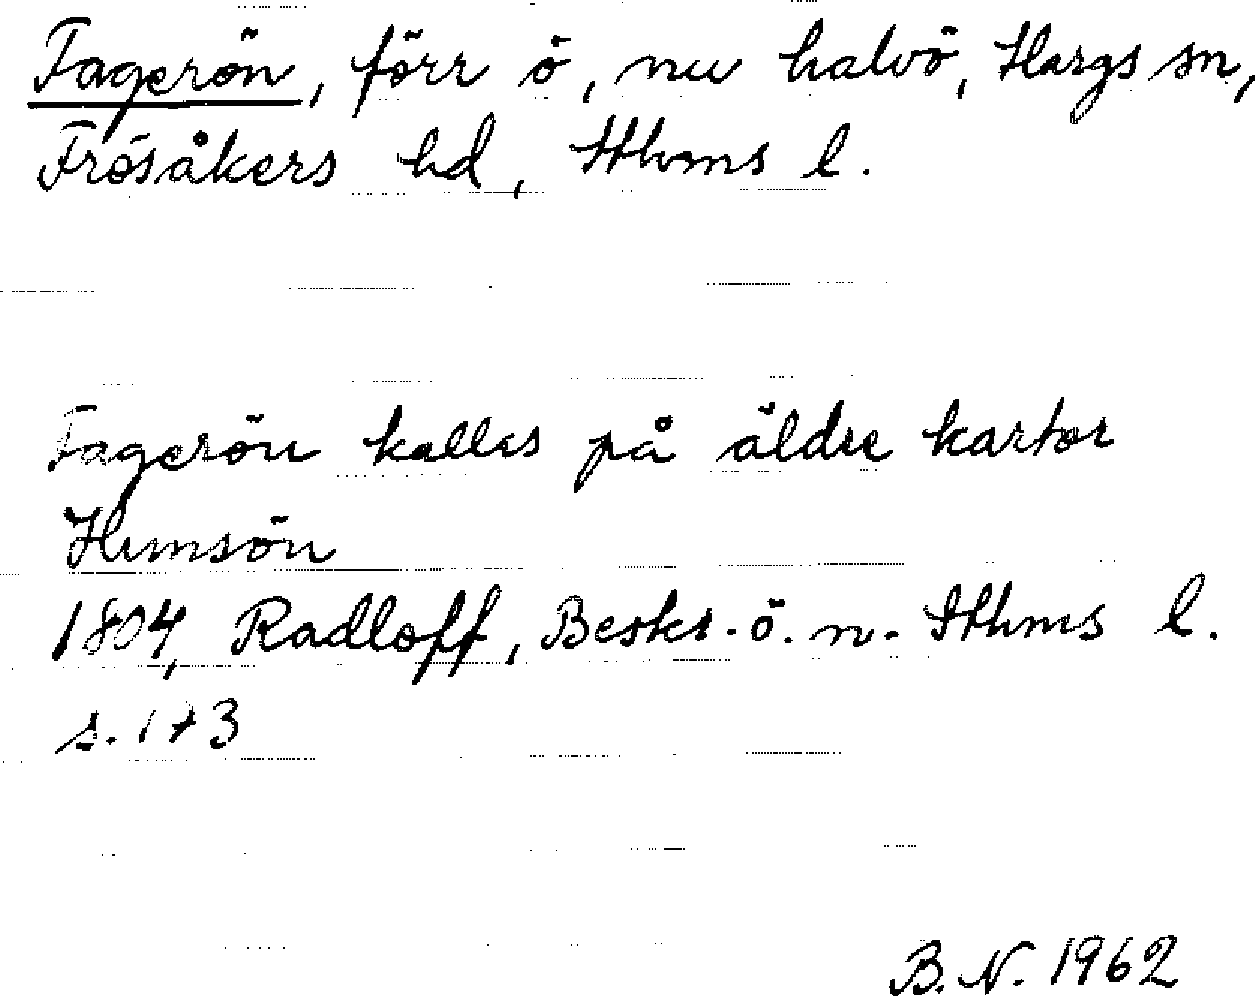 Fagerön, förr ö, nu halvö, Hargs sn,
Frösåkers hd, Sthms l.
Fagerön kallas på äldre kartor
Humsön
1804, Radloff, Beskr. ö. n. Sthms l.
s. 173
B. N. 1962